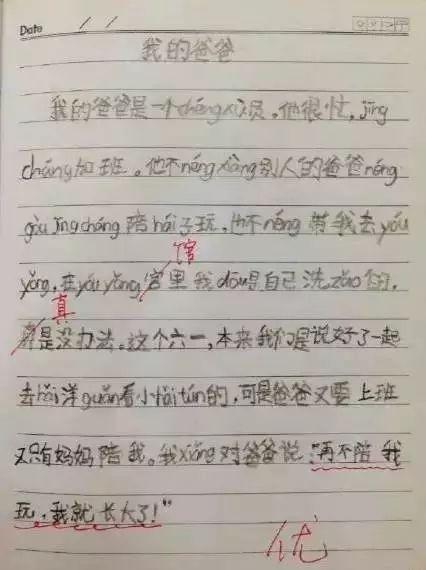 Date / /
我的爸爸
我的爸爸是一个chéng xù员,他很忙,jīng
cháng加班。他不néng xiàng别人的爸爸néng
gòu jīng cháng 陪hái子玩,他不néng 带我去yóu
馆
yǒng,在yóu yǒng宫里 我dōu是自己 洗zǎo 的,
真
是没办法。这个六一,本来我们是说好了一起
去hǎi洋guǎn看小hǎi tún的,可是爸爸又要 上班
又只有妈妈陪我。我xiǎng对爸爸说:"再不陪 我
玩,我就 长大了!"
优